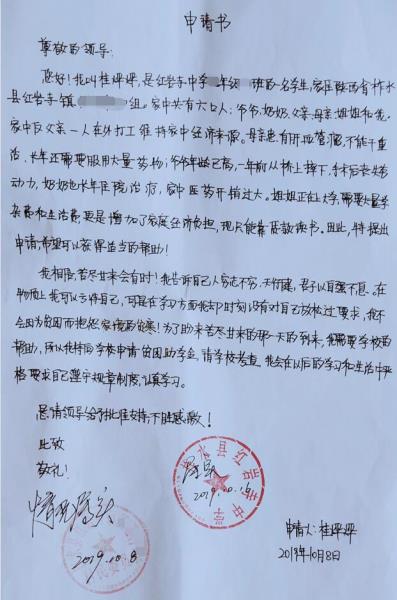 申请书
尊敬的领导:
您好!我叫桂婷婷,是红岩寺中学 年级 班的一名学生,家住陕西省柞水
县红岩寺镇 组。家中共有六口人:爷爷、奶奶、父亲、母亲、姐姐和我。
家中仅父亲一人在外打工维持家中经济来源。母亲患有肝硬 不能干重
活、长年还需要服用大量药物;爷爷年龄已高,一年前从桥上摔下,手术后丧失劳
动力,奶奶也长年住院治疗,家中医药开销过大。姐姐正在上大学,需要大量学
杂费和生活费,更是增加了家庭经济负担,现只能靠贷款读书。因此,特提出
申请,希望可以获得适当的帮助!
我相信,苦尽甘来会有时!我告诉自己人穷志不穷,天行健,君子以自强不息。在
物质上我可以亏待自己,可是在学习方面我却时刻没有对自己放松过要求,我不
会因为贫困而抱怨家境的贫寒!为了助来苦尽甘来的那一天的到来,我需要学校的
帮助,所以我特向学校申请贫困助学金,请学校考查,我会在以后的学习和生活中严
格要求自己遵守规章制度,认真学习。
恳请领导给予批准支持,不胜感激!
此致
敬礼!
情况属实
2019.10.8
属实
2019.10.8
柞水县红岩寺中学
申请人:桂婷婷
2019年10月8日